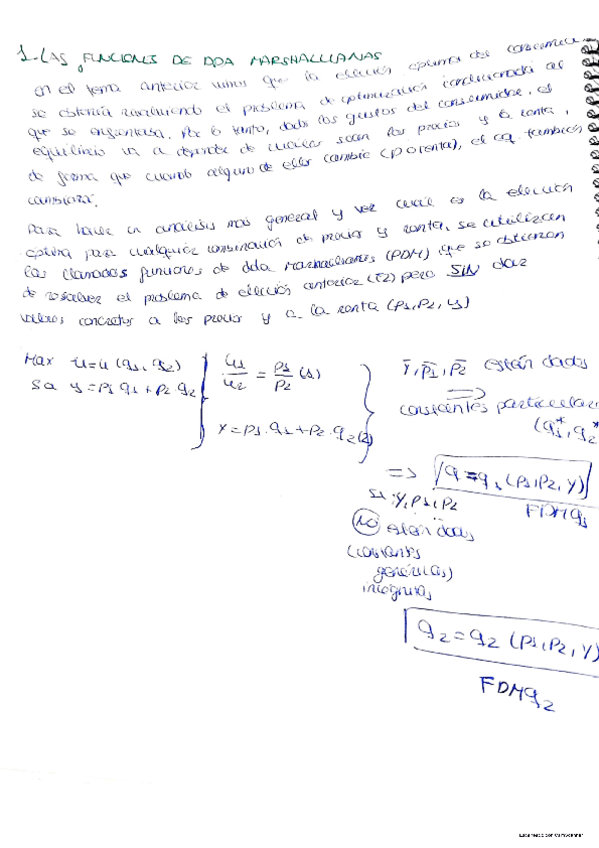 1-LAS FUNCIONES DE DDA MARSHALLIANAS
en el tema anterior vimos que la elección óptima del consumidor
se obtenía resolviendo el problema de optimización condicionada al
que se enfrentaba. Por lo tanto, dados los gustos del consumidor, el
equilibrio va a depender de cuales sean los precios y la renta,
de forma que cuando alguno de ellos cambie (p o renta), el eq también
cambiará.
Para hacer un análisis más general y ver cual es la elección
óptima para cualquier combinación de precios y renta, se utilizan
las llamadas funciones de dda Marshallianas (FDM), que se obtienen
de resolver el problema de elección anterior (T2) pero SIN dar
valores concretos a los precios y a la renta (p1,p2,y)
Max u=u(q1,q2)
sa y=p1 q1+p2 q2
u1/u2 = p1/p2 (1)
Y=p1·q1+p2·q2(2)
Y̅,p̅1,p̅2 están dados
⇒
constantes particular
(q1*,q2*
=> q1=q1(p1,p2,y)
FDMq1
si:y,p1,p2
NO están dados
(constantes
genéricas)
incógnitas
q2=q2(p1,p2,y)
FDMq2